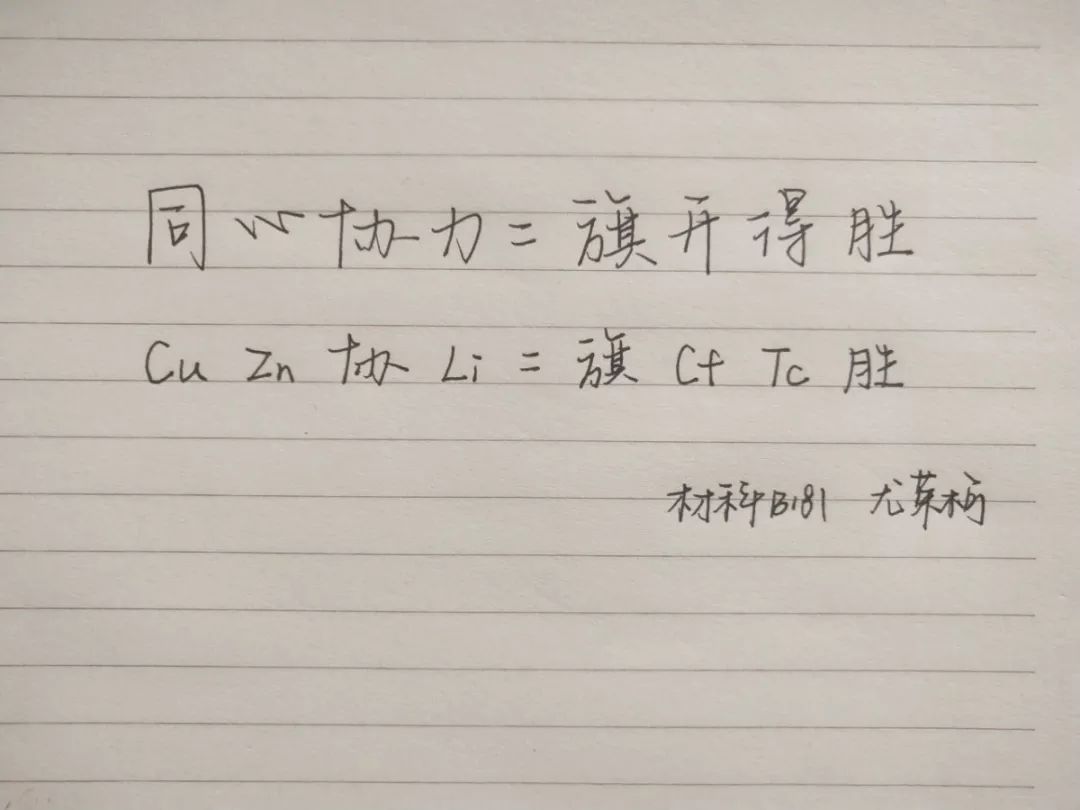 同心协力=旗开得胜
Cu Zn 协 Li = 旗 Cf Tc 胜
材科B181 尤英柯